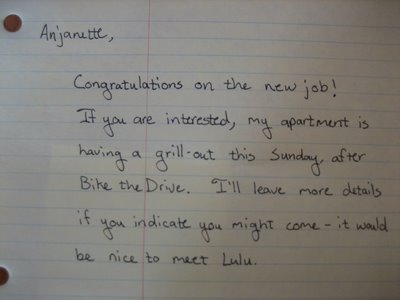 Anjanette,
Congratulations on the new job!
If you are interested, my apartment is
having a grill-out this Sunday, after
Bike the Drive. I'll leave more details
if you indicate you might come - it would
be nice to meet Lulu.